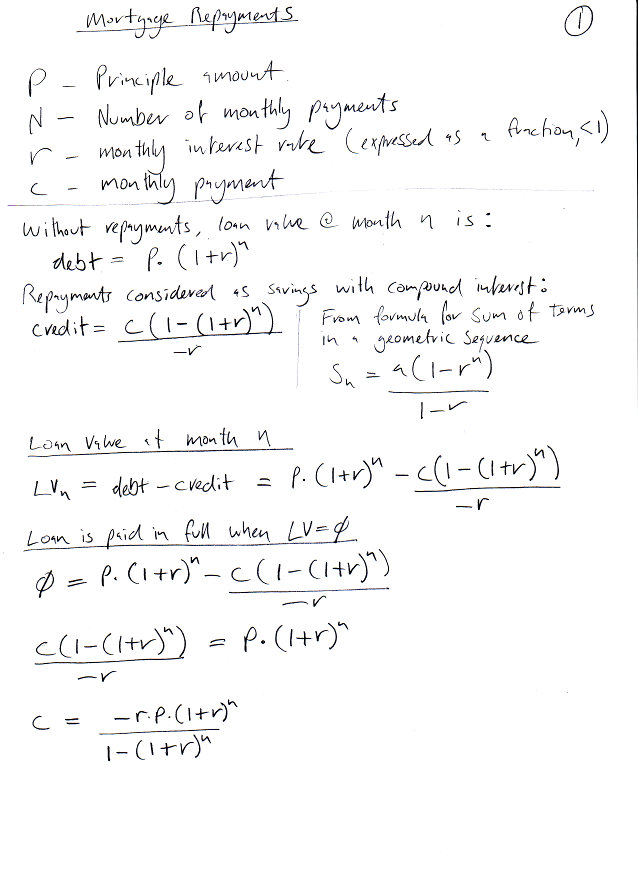 Mortgage Repayments
①
P - Principle amount.
N - Number of monthly payments
r - monthly interest rate (expressed as a fraction, <1)
c - monthly payment
Without repayments, loan value @ month n is:
debt = P. (1+r)^n
Repayments considered as savings with compound interest:
credit = c(1-(1+r)^n) / -r
From formula for sum of terms
in a geometric sequence
Sn = a(1-r^n) / 1-r
Loan Value at month n
LVn = debt - credit = P. (1+r)^n - c(1-(1+r)^n) / -r
Loan is paid in full when LV=∅
∅ = P. (1+r)^n - c(1-(1+r)^n) / -r
c(1-(1+r)^n) / -r = P. (1+r)^n
c = -r.P.(1+r)^n / 1-(1+r)^n